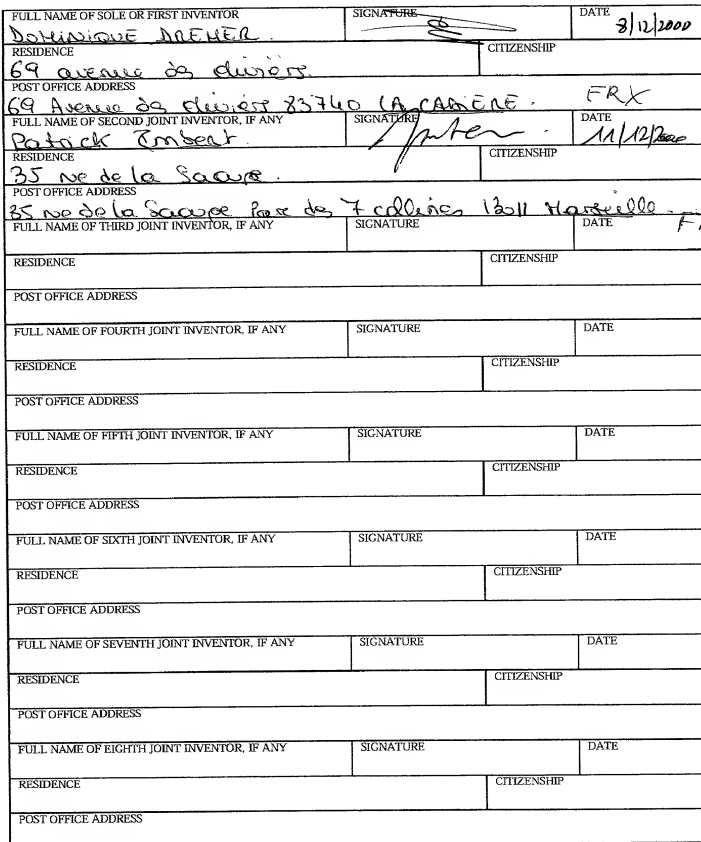 FULL NAME OF SOLE OR FIRST INVENTOR SIGNATURE DATE
DOMINIQUE DREHER. 8/12/2000
RESIDENCE CITIZENSHIP
69 avenue des
POST OFFICE ADDRESS
69 Avenue des 83740 LA CADIERE. FRX
FULL NAME OF SECOND JOINT INVENTOR, IF ANY SIGNATURE DATE
Patrick Imbert. 11/12/2000
RESIDENCE CITIZENSHIP
35 rue de la
POST OFFICE ADDRESS
35 rue de la des 7 collines 13011 Marseille.
FULL NAME OF THIRD JOINT INVENTOR, IF ANY SIGNATURE DATE
RESIDENCE CITIZENSHIP
POST OFFICE ADDRESS
FULL NAME OF FOURTH JOINT INVENTOR, IF ANY SIGNATURE DATE
RESIDENCE CITIZENSHIP
POST OFFICE ADDRESS
FULL NAME OF FIFTH JOINT INVENTOR, IF ANY SIGNATURE DATE
RESIDENCE CITIZENSHIP
POST OFFICE ADDRESS
FULL NAME OF SIXTH JOINT INVENTOR, IF ANY SIGNATURE DATE
RESIDENCE CITIZENSHIP
POST OFFICE ADDRESS
FULL NAME OF SEVENTH JOINT INVENTOR, IF ANY SIGNATURE DATE
RESIDENCE CITIZENSHIP
POST OFFICE ADDRESS
FULL NAME OF EIGHTH JOINT INVENTOR, IF ANY SIGNATURE DATE
RESIDENCE CITIZENSHIP
POST OFFICE ADDRESS